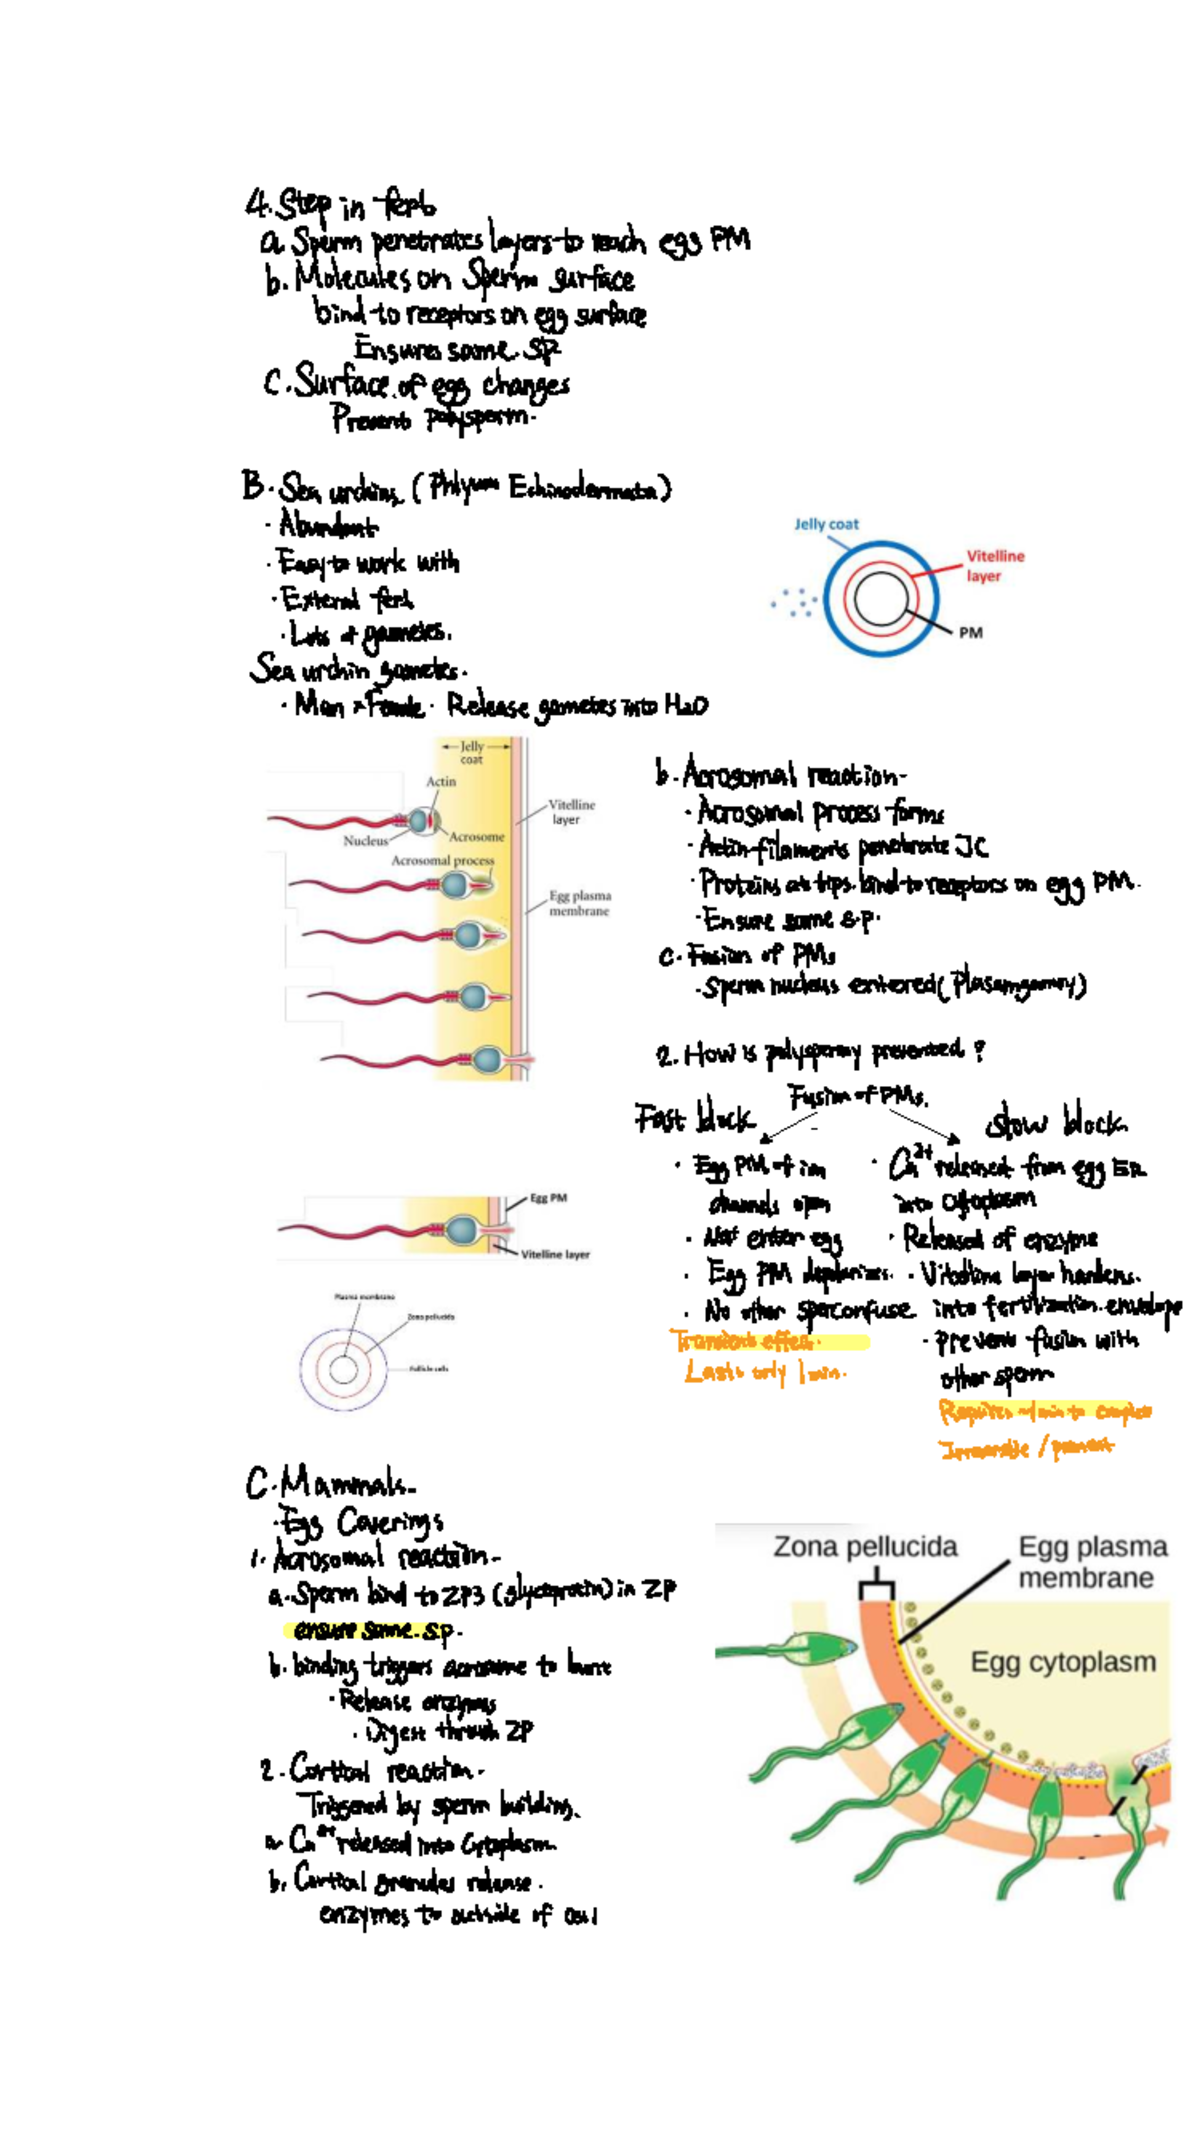 4. Step in fert
a. Sperm penetrates layers to reach egg PM
b. Molecules on Sperm surface
bind to receptors on egg surface
Ensures same sp
C. Surface of egg changes
Prevents Polysperm.
B. Sea urchins (Phlyum Echinodermata)
· Abundant
· Easy to work with
· External fert
· Lots of gametes.
Sea urchin gametes.
· Man + Female · Release gametes into H2O
Jelly coat
Vitelline
layer
PM
Jelly
coat
Actin
Vitelline
layer
Nucleus
Acrosome
Acrosomal process
Egg plasma
membrane
b. Acrosomal reaction-
· Acrosomal process forms
· Actin filaments penetrate JC
· Proteins at tips bind to receptors on egg PM.
· Ensure same sp.
c. Fusion of PMs
· Sperm nucleus entered (Plasamgamy)
2. How is polyspermy prevented?
Fusion of PMs.
Fast block
Slow block
· Egg PM of ion
channels open
· Na+ enter egg
· Egg PM depolarizes.
· No other sperconfuse
Transient effect.
Lasts only 1 min.
· Ca2+ released from egg ER
into cytoplasm
· Released of enzyme
· Vitelline layer hardens.
into fertilization envelope
· prevent fusion with
other sperm
Requires ~1 min to complete
/
Egg PM
Vitelline layer
Plasma membrane
Zona pellucida
Follicle cells
C. Mammals.
· Egg Coverings
1. Acrosomal reaction-
a. Sperm bind to ZP3 (glycoprotein) in ZP
ensure same sp.
b. binding triggers acrosome to burst
· Release enzymes
· Digest through ZP
2. Cortical reaction.
Triggered by sperm building.
a. Ca2+ released into Cytoplasm.
b. Cortical granules release.
enzymes to outside of cell
Zona pellucida
Egg plasma
membrane
Egg cytoplasm